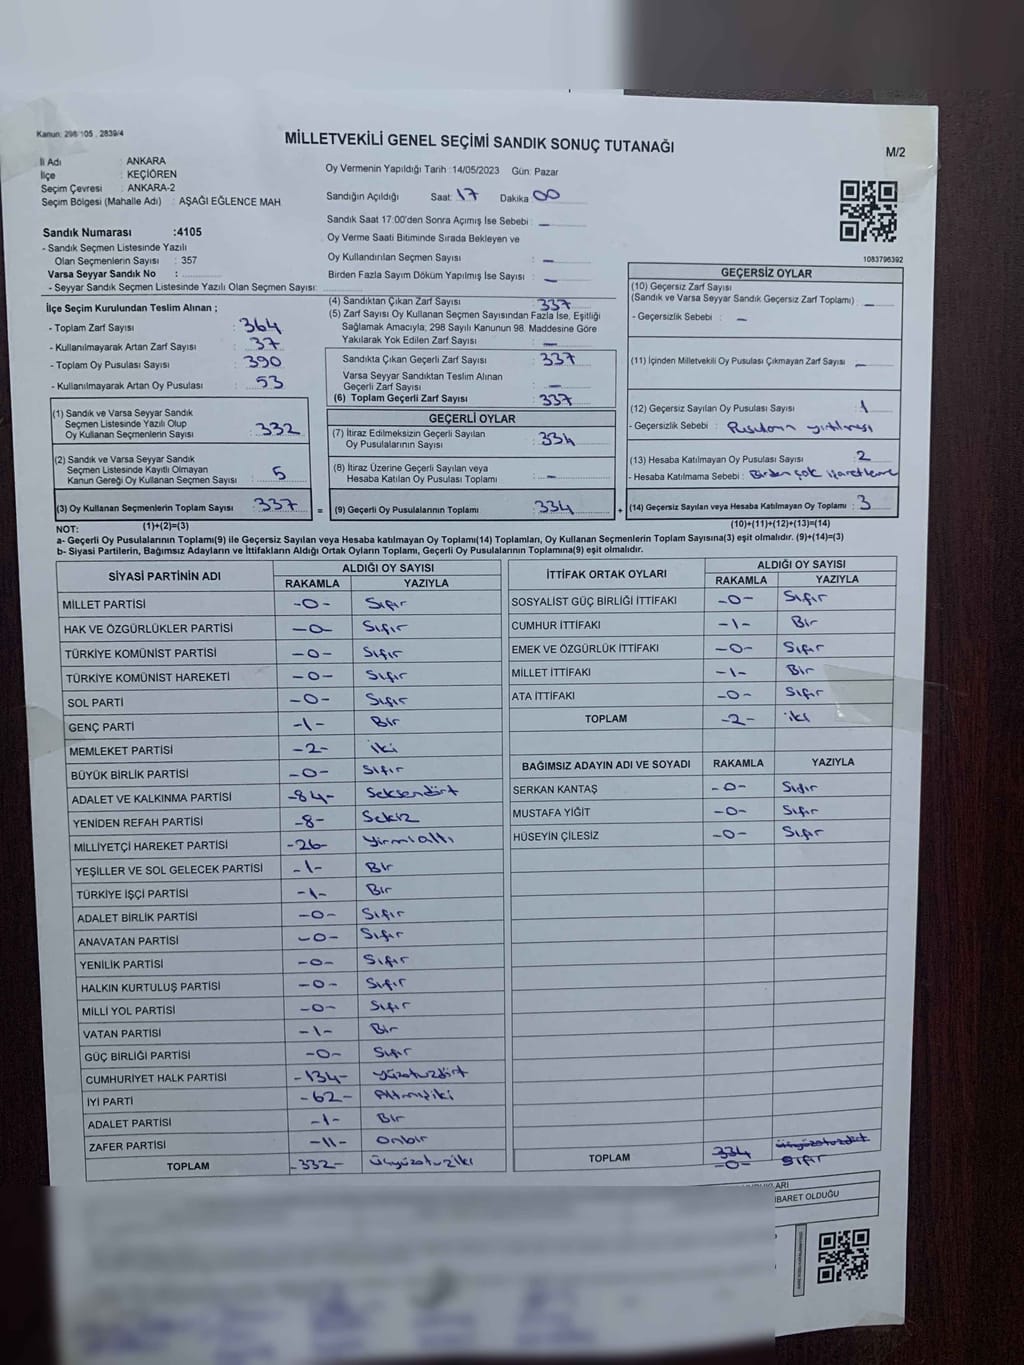 Kanun: 298/105, 2839/4
MİLLETVEKİLİ GENEL SEÇİMİ SANDIK SONUÇ TUTANAĞI
M/2
İl Adı : ANKARA
İlçe : KEÇİÖREN
Seçim Çevresi : ANKARA-2
Seçim Bölgesi (Mahalle Adı) : AŞAĞI EĞLENCE MAH
Sandık Numarası :4105
- Sandık Seçmen Listesinde Yazılı
Olan Seçmenlerin Sayısı : 357
Varsa Seyyar Sandık No :
- Seyyar Sandık Seçmen Listesinde Yazılı Olan Seçmen Sayısı:
Oy Vermenin Yapıldığı Tarih :14/05/2023 Gün: Pazar
Sandığın Açıldığı Saat: 17 Dakika 00
Sandık Saat 17:00'den Sonra Açımış İse Sebebi : —
Oy Verme Saati Bitiminde Sırada Bekleyen ve
Oy Kullandırılan Seçmen Sayısı : —
Birden Fazla Sayım Döküm Yapılmış İse Sayısı : —
1083796392
İlçe Seçim Kurulundan Teslim Alınan ;
- Toplam Zarf Sayısı : 364
- Kullanılmayarak Artan Zarf Sayısı : 37
- Toplam Oy Pusulası Sayısı : 390
- Kullanılmayarak Artan Oy Pusulası : 53
(1) Sandık ve Varsa Seyyar Sandık
Seçmen Listesinde Yazılı Olup
Oy Kullanan Seçmenlerin Sayısı : 332
(2) Sandık ve Varsa Seyyar Sandık
Seçmen Listesinde Kayıtlı Olmayan
Kanun Gereği Oy Kullanan Seçmen Sayısı : 5
(3) Oy Kullanan Seçmenlerin Toplam Sayısı : 337
(4) Sandıktan Çıkan Zarf Sayısı : 337
(5) Zarf Sayısı Oy Kullanan Seçmen Sayısından Fazla İse, Eşitliği
Sağlamak Amacıyla, 298 Sayılı Kanunun 98. Maddesine Göre
Yakılarak Yok Edilen Zarf Sayısı : —
Sandıkta Çıkan Geçerli Zarf Sayısı : 337
Varsa Seyyar Sandıktan Teslim Alınan
Geçerli Zarf Sayısı : —
(6) Toplam Geçerli Zarf Sayısı : 337
GEÇERLİ OYLAR
(7) İtiraz Edilmeksizin Geçerli Sayılan
Oy Pusulasının Sayısı : 334
(8) İtiraz Üzerine Geçerli Sayılan veya
Hesaba Katılan Oy Pusulası Toplamı : —
= (9) Geçerli Oy Pusulalarının Toplamı : 334
GEÇERSİZ OYLAR
(10) Geçersiz Zarf Sayısı
(Sandık ve Varsa Seyyar Sandık Geçersiz Zarf Toplamı) : —
- Geçersizlik Sebebi : —
(11) İçinden Milletvekili Oy Pusulası Çıkmayan Zarf Sayısı : —
(12) Geçersiz Sayılan Oy Pusulası Sayısı : 1
- Geçersizlik Sebebi : Pusulanın yırtılması
(13) Hesaba Katılmayan Oy Pusulası Sayısı : 2
- Hesaba Katılmama Sebebi : Birden çok işaretleme
+ (14) Geçersiz Sayılan veya Hesaba Katılmayan Oy Toplamı : 3
NOT: (1)+(2)=(3)
(10)+(11)+(12)+(13)=(14)
a- Geçerli Oy Pusulalarının Toplamı(9) ile Geçersiz Sayılan veya Hesaba katılmayan Oy Toplamı(14) Toplamları, Oy Kullanan Seçmenlerin Toplam Sayısına(3) eşit olmalıdır. (9)+(14)=(3)
b- Siyasi Partilerin, Bağımsız Adayların ve İttifakların Aldığı Ortak Oyların Toplamı, Geçerli Oy Pusulalarının Toplamına(9) eşit olmalıdır.
SİYASİ PARTİNİN ADI ALDIĞI OY SAYISI
RAKAMLA YAZIYLA
MİLLET PARTİSİ -0- Sıfır
HAK VE ÖZGÜRLÜKLER PARTİSİ -0- Sıfır
TÜRKİYE KOMÜNİST PARTİSİ -0- Sıfır
TÜRKİYE KOMÜNİST HAREKETİ -0- Sıfır
SOL PARTİ -0- Sıfır
GENÇ PARTİ -1- Bir
MEMLEKET PARTİSİ -2- iki
BÜYÜK BİRLİK PARTİSİ -0- Sıfır
ADALET VE KALKINMA PARTİSİ -84- Seksendört
YENİDEN REFAH PARTİSİ -8- Sekiz
MİLLİYETÇİ HAREKET PARTİSİ -26- Yirmialtı
YEŞİLLER VE SOL GELECEK PARTİSİ -1- Bir
TÜRKİYE İŞÇİ PARTİSİ -1- Bir
ADALET BİRLİK PARTİSİ -0- Sıfır
ANAVATAN PARTİSİ -0- Sıfır
YENİLİK PARTİSİ -0- Sıfır
HALKIN KURTULUŞ PARTİSİ -0- Sıfır
MİLLİ YOL PARTİSİ -0- Sıfır
VATAN PARTİSİ -1- Bir
GÜÇ BİRLİĞİ PARTİSİ -0- Sıfır
CUMHURİYET HALK PARTİSİ -134- Yüzotuzdört
İYİ PARTİ -62- Altmışiki
ADALET PARTİSİ -1- Bir
ZAFER PARTİSİ -11- Onbir
TOPLAM -332- Üçyüzotuziki
İTTİFAK ORTAK OYLARI ALDIĞI OY SAYISI
RAKAMLA YAZIYLA
SOSYALİST GÜÇ BİRLİĞİ İTTİFAKI -0- Sıfır
CUMHUR İTTİFAKI -1- Bir
EMEK VE ÖZGÜRLÜK İTTİFAKI -0- Sıfır
MİLLET İTTİFAKI -1- Bir
ATA İTTİFAKI -0- Sıfır
TOPLAM -2- iki
BAĞIMSIZ ADAYIN ADI VE SOYADI RAKAMLA YAZIYLA
SERKAN KANTAŞ -0- Sıfır
MUSTAFA YİĞİT -0- Sıfır
HÜSEYİN ÇİLESİZ -0- Sıfır
TOPLAM 334 üçyüzotuzdört
-0- Sıfır
IBARET OLDUĞU